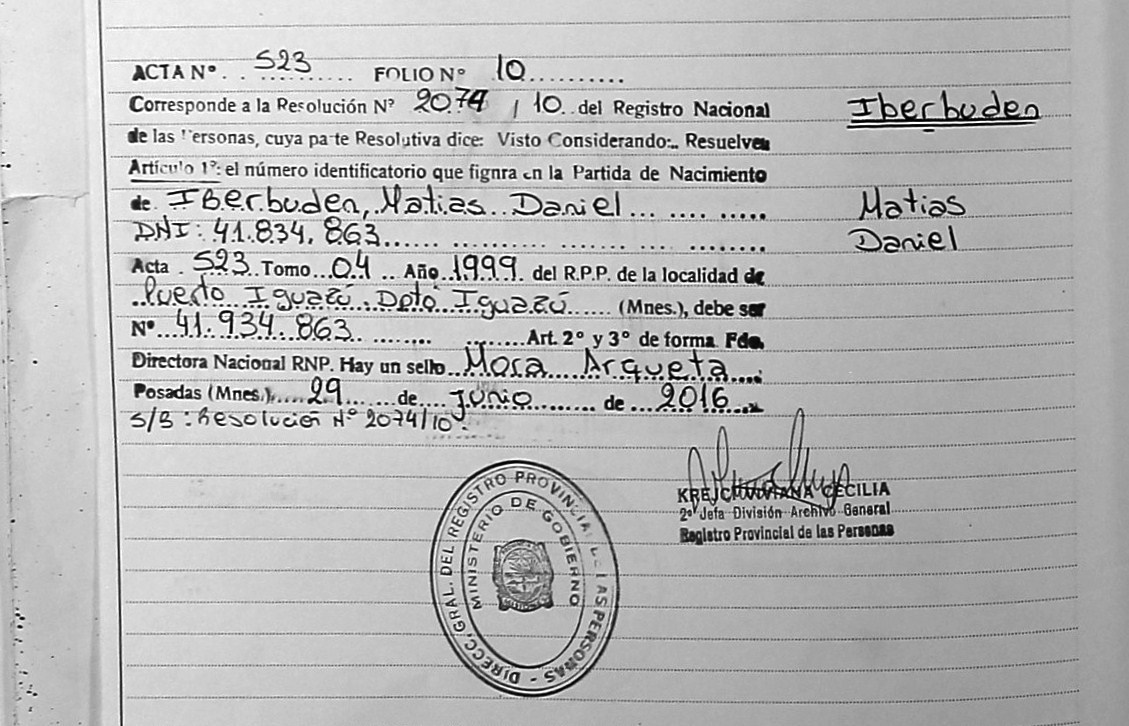 ACTA Nº . . 523 ........... FOLIO Nº 10...........
Corresponde a la Resolución Nº 2074 / 10 . del Registro Nacional
Iberbuden
de las Personas, cuya parte Resolutiva dice: Visto Considerando:.. Resuelven
Artículo 1º: el número identificatorio que fignra en la Partida de Nacimiento
de. Iberbuden, Matias Daniel ... .... .....
Matias
DNI: 41.834.863...... ......... .... ... ........
Daniel
Acta . 523 Tomo ..04 .. Año 1999 del R.P.P. de la localidad de
Puerto Iguazú. Dpto Iguazú ...... (Mnes.), debe ser
Nº .. 41.934.863 ........ ........Art. 2º y 3º de forma Fdo.
Directora Nacional RNP. Hay un sello Mora Argueta
Posadas (Mnes.)..... 29 ..... de .... junio ........ de ... 2016
S/B : Resolución Nº 2074/10.
CECILIA
2º Jefa División Archivo General
Registro Provincial de las Personas
DIRECC. GRAL. DEL REGISTRO PROVINCIAL DE LAS PERSONAS -
MINISTERIO DE GOBIERNO